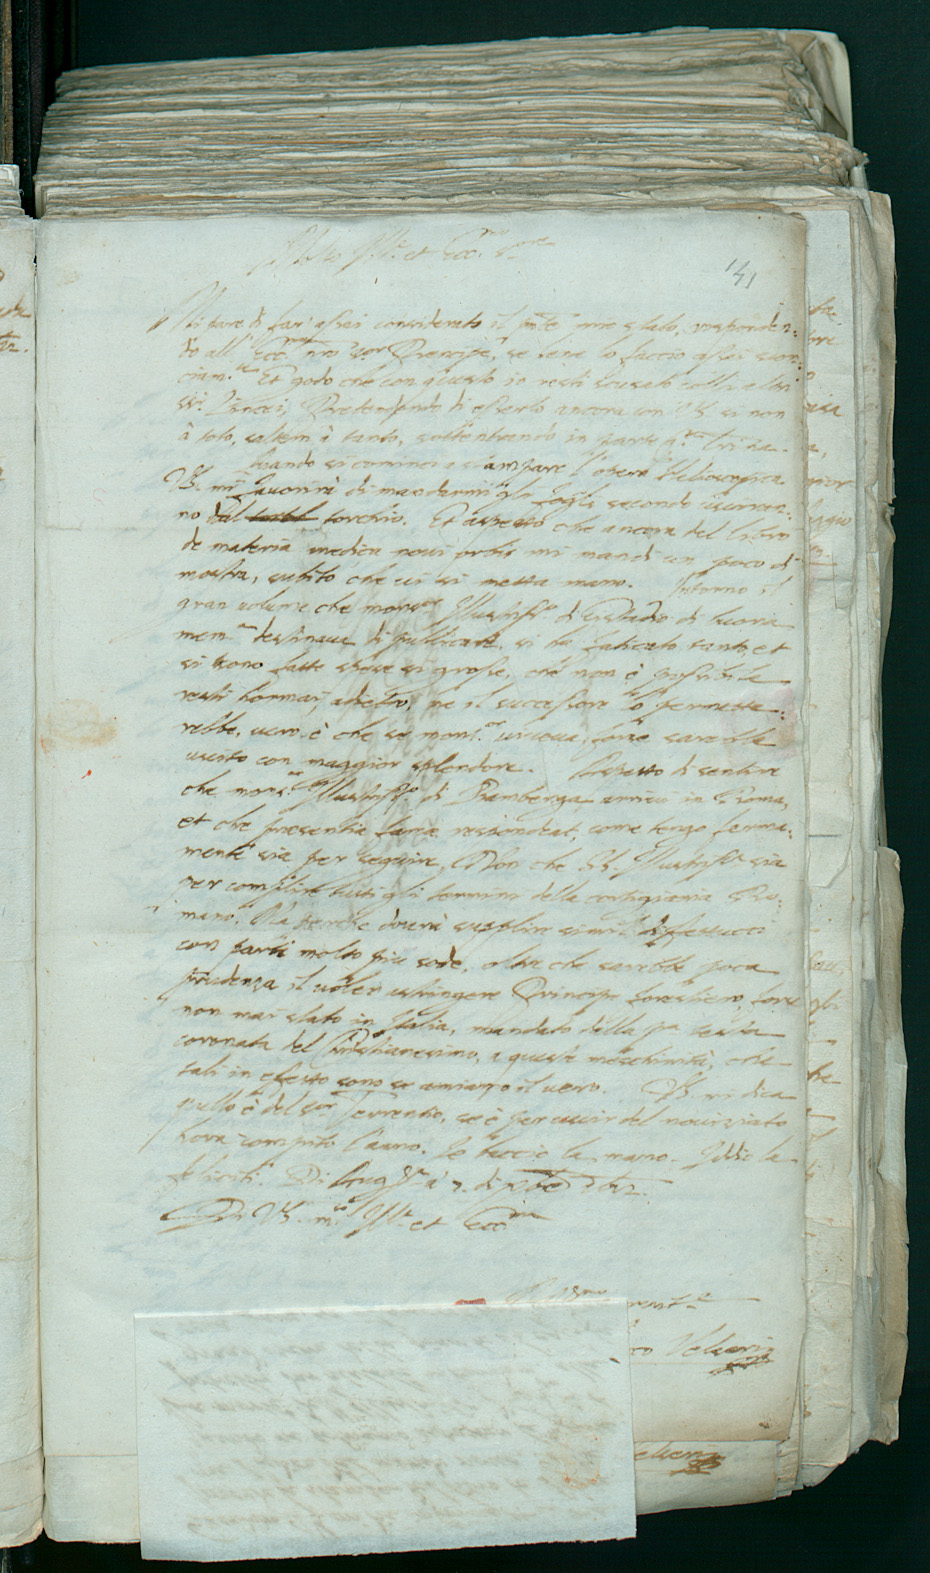 Molto Ill.re et Ecc.mo S.re
141
Mi pare di far assai considerato il pnte mio stato, risponden:
do all' Ecc.mo nro sor Prencipe, se bene lo faccio assai scon:
ciam.te Et godo che con questo io resti scusato colli altri
SS.ri Lincei, Pretendendo di esserlo ancora con VS. si non
à toto, saltem à tanto, sottentrando in parte
Quando si comincia a stampare l'opera Helioscopica
VS. mi favorirà di mandarmi li fogli secondo usciran:
no dal torchio. Et aspetto che ancora del libro
de materia medica novi orbis mi mandi un poco di
mostra, subito che vi si metta mano. Intorno il
gran volume che mons.or Illustriss.o di Eistadio di buona
mem.a destinava di publicare, si ha faticato tanto, et
si sono fatte spese si grosse, che non è possibile
resti hormai adietro, ne il successore lo permette:
rebbe, vero è che se mons.or viveva, forse sarebbe
uscito con maggior splendore. Aspetto di sentire
che mons.or Illustriss.o di Bamberga arrivi in Roma,
et che praesentia famae respondeat, come tengo ferma:
mente sia per seguire, Non che SS. Illustriss.a sia
per complire tutti gli termini della cortigiania Ro:
mana. Ma perche dovrà supplire simil
con parti molto più sode, oltre che sarebbe poca
prudenza il voler astringere Principe forestiero, forse
non mai stato in Italia, mandato dalla p.a testa
coronata del Christianesimo, a queste meschinità, che
tali in effetto sono se amiamo il vero. VS. mi dica
del S.or Terrentio, se è per uscir del novitiato
hora compito l'anno. Le baccio la mano. Iddio la
feliciti. Di Aug.ta à 7. di
Di VS. m.to Ill.re et Ecc.ma
Velseri